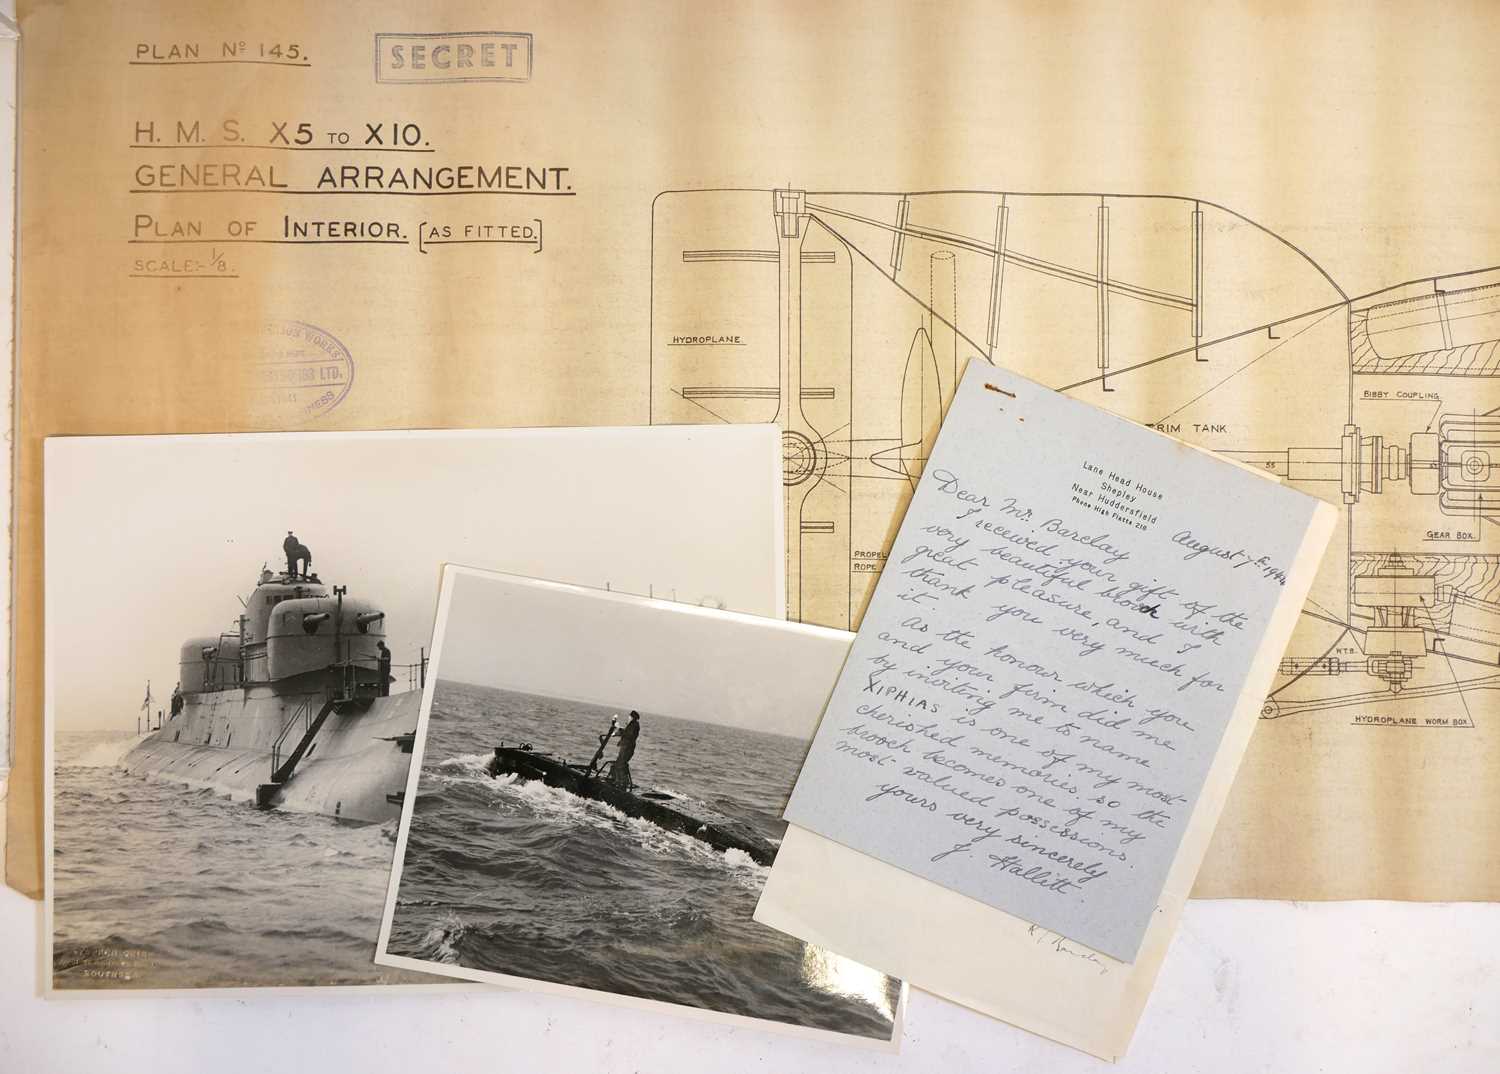 PLAN Nº 145.
SECRET
H. M. S. X5 TO X10.
GENERAL ARRANGEMENT.
PLAN OF INTERIOR. [AS FITTED.]
SCALE:- 1/8.
WORKS
LTD.
HYDROPLANE
TRIM TANK
BIBBY COUPLING
55
GEAR BOX.
ROPE
W.T.B.
HYDROPLANE WORM BOX
Lane Head House
Shepley
Near Huddersfield
Phone High Flatts 218
August 7th, 1944
Dear Mr. Barclay
I received your gift of the
very beautiful brooch with
great pleasure, and I
thank you very much for
it.
As the honour which you
and your firm did me
by inviting me to name
XIPHIAS is one of my most
cherished memories, so the
brooch becomes one of my
most valued possessions.
yours very sincerely
J. Hallitt.
SOUTHSEA